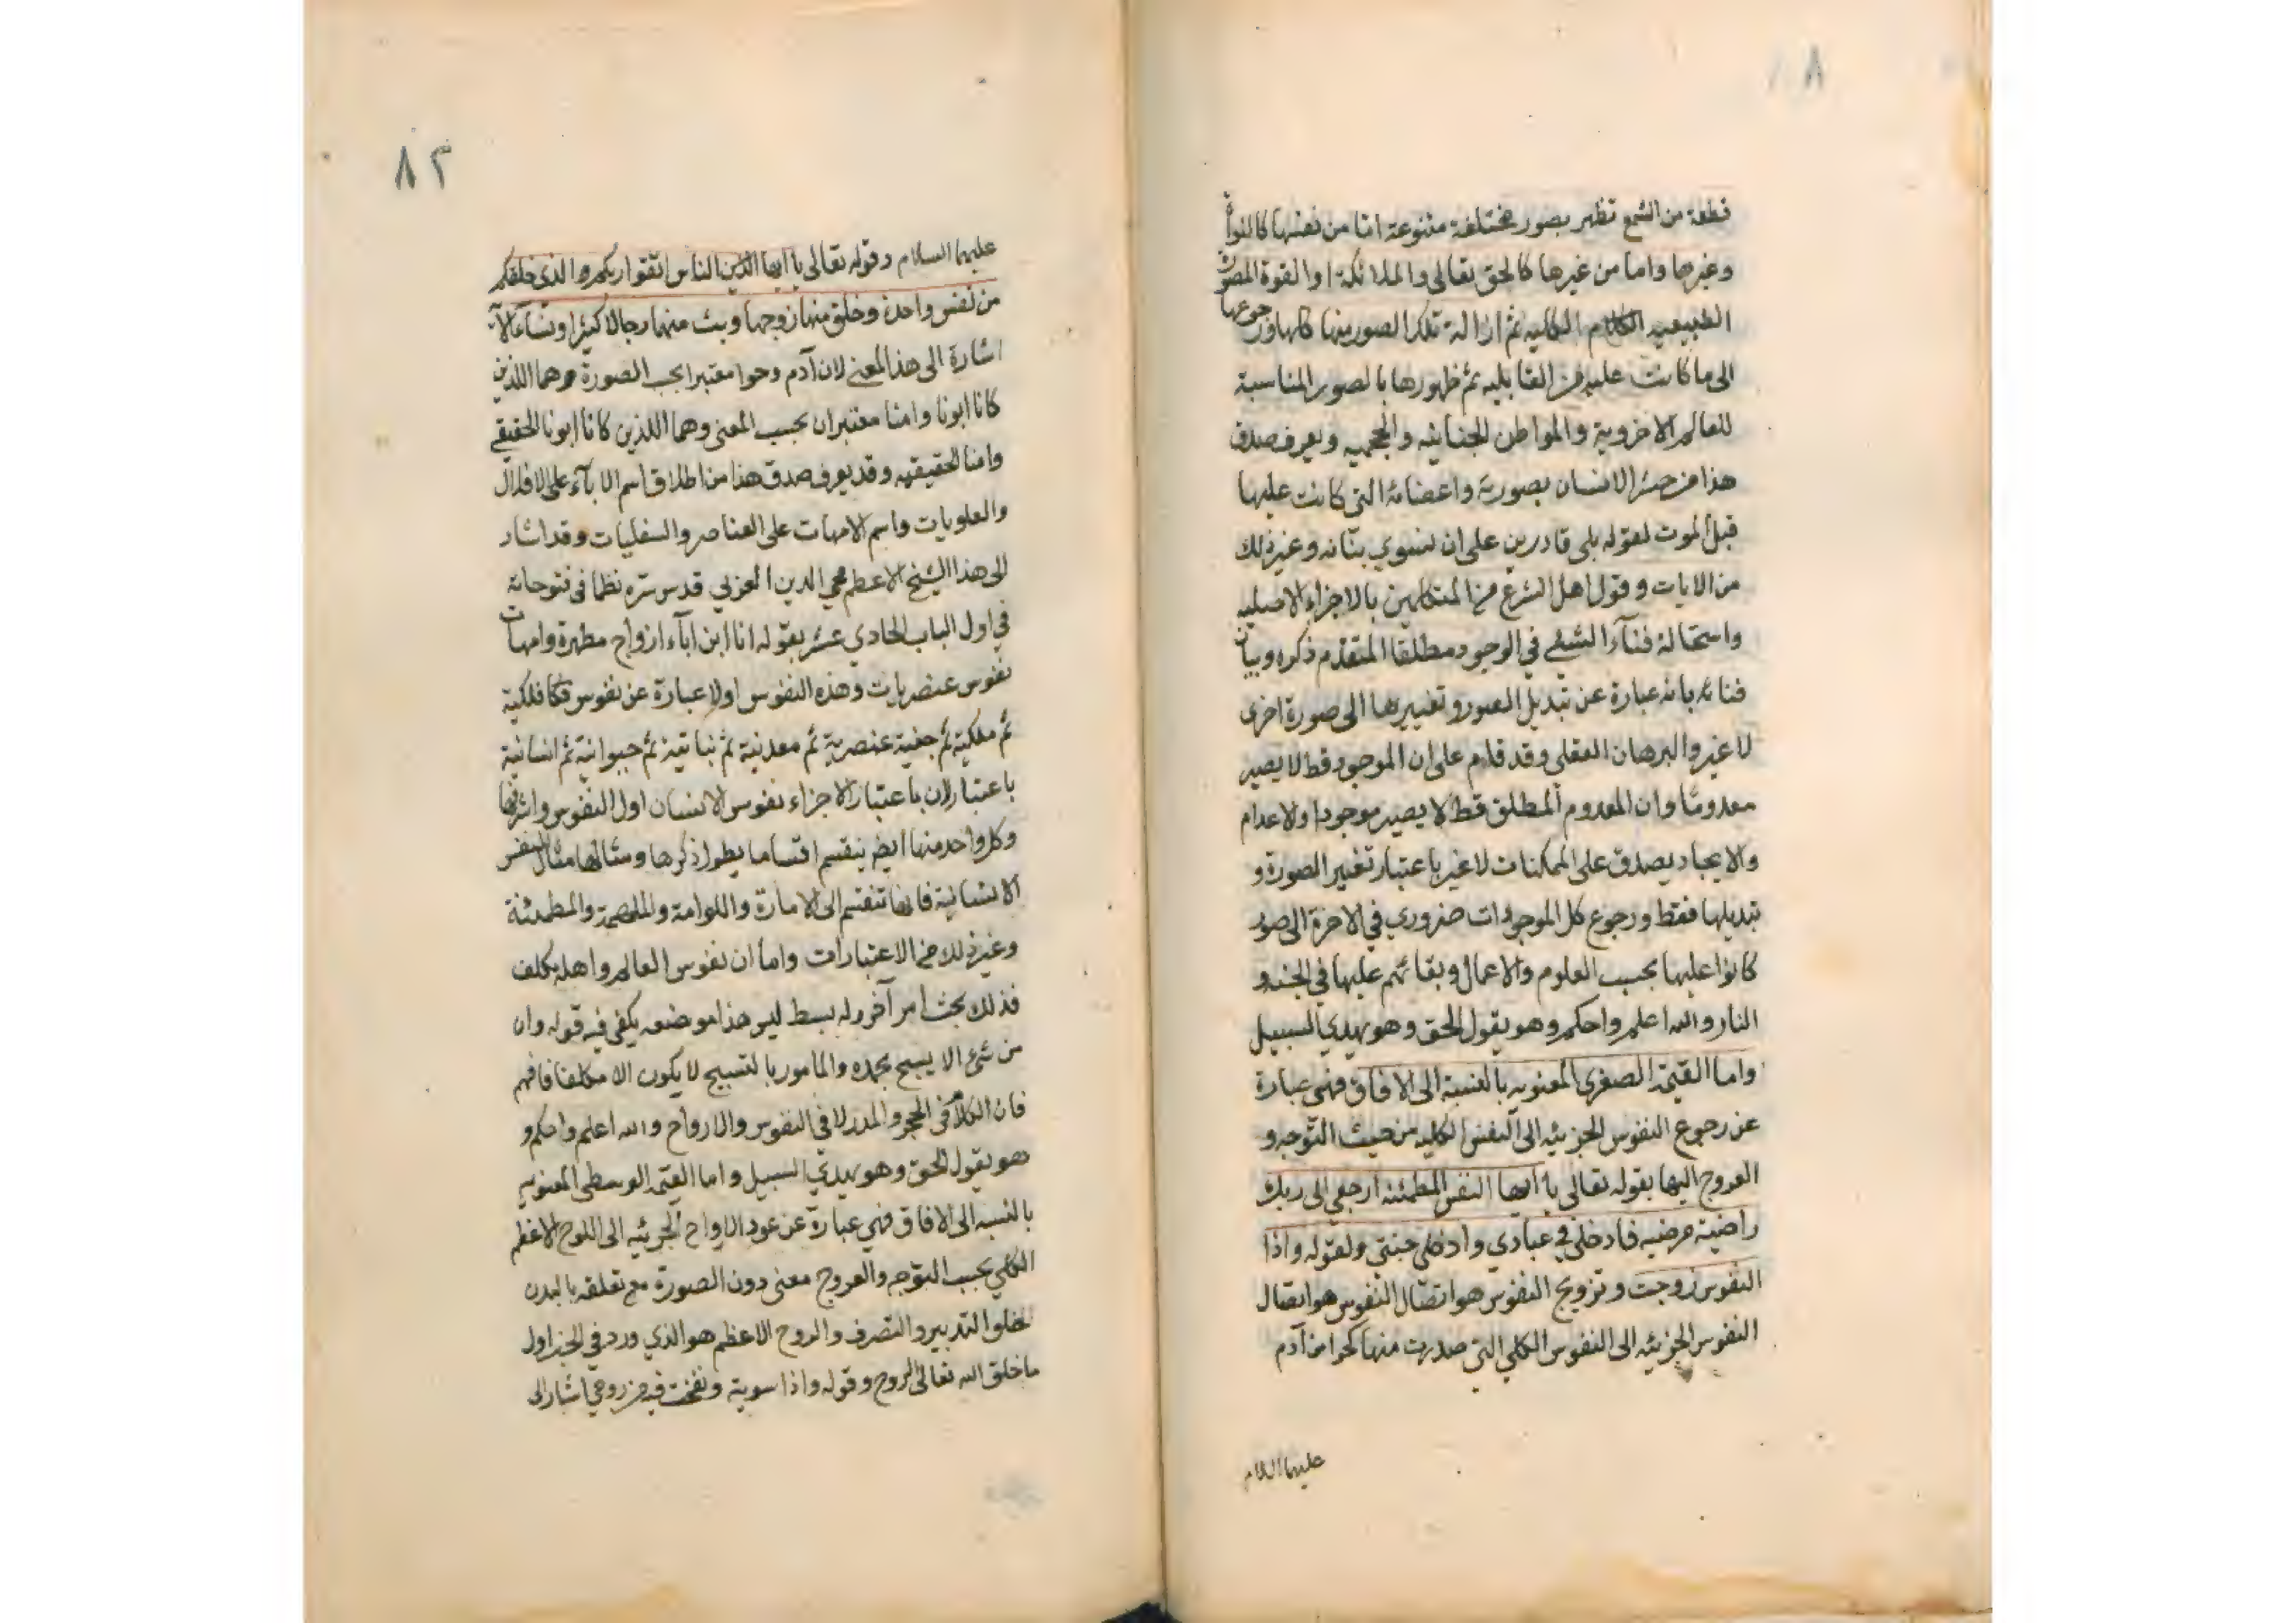 ٨
قطعة من الشمع تظهر بصور مختلفة متنوعة اما من نفسها كالنواة
وغيرها واما من غيرها كالحق تعالى والملائكة او القوة المصورة
الطبيعيه الكلام الكليه ثم ازالة تلك الصور منها كلها ورجوعها
الى ما كانت عليه من القابليه ثم ظهورها بالصور المناسبة
للعالم الاخروية والمواطن الجنانيه والجحيميه ويعرف صدق
هذا من حشر الانسان بصورته واعضائه التى كانت عليها
قبل الموت لقوله بلى قادرين على ان نسوي بنانه وغير ذلك
من الايات وقول اهل الشرع من المتكلمين بالاجزاء الاصليه
واستحالة فنآء الشئ في الوجود مطلقا المتقدم ذكره وبيان
فنائه بانه عبارة عن تبديل الصور وتغييرها الى صورة اخرى
لا غير والبرهان العقلى وقد قام على ان الموجود قط لا يصير
معدومًا وان المعدوم المطلق قط لا يصير موجودا والاعدام
والايجاد يصدق على الممكنات لا غير باعتبار تغيير الصورة و
تبديلها فقط ورجوع كل الموجودات ضروري في الاخرة الى صور
كانوا عليها بحسب العلوم والاعمال وبقائهم عليها في الجنه و
النار والله اعلم واحكم وهو يقول الحق وهو يهدي السبيل
واما القيمة الصغرى المعنويه بالنسبة الى الافاق فهى عبارة
عن رجوع النفوس الجزئيه الى النفس الكليه من حيث التوجه و
العروج اليها بقوله تعالى يا ايتها النفس المطمئنه ارجعي الى ربك
راضية مرضيه فادخلى في عبادي وادخلى جنتي ولقوله واذا
النفوس زوجت وتزويج النفوس هو اتصال النفوس هو اتصال
النفوس الجزئيه الى النفوس الكلي التى صدرت منها كحوا من آدم
عليهما السلام
٨٢
عليهما السلام وقوله تعالى يا ايها الذين الناس اتقوا ربكم والذى خلقكم
من نفس واحدة وخلق منها زوجها وبث منهما رجالا كثيرا ونسآء الآية
اشارة الى هذا المعنى لان آدم وحوا معتبرا بحسب الصورة وهما اللذين
كانا ابونا وامنا معتبران بحسب المعنى وهما اللذين كانا ابونا الحقيقي
وامنا الحقيقيه وقد يعرف صدق هذا من اطلاق اسم الابآء على الافلاك
والعلويات واسم الامهات على العناصر والسفليات وقد اشار
الى هذا الشيخ الاعظم محي الدين العربي قدس سره نظما فى فتوحاته
في اول الباب الحادي عشر بقوله انا ابن ابآء ارواح مطهرة وامهات
نفوس عنصريات وهذه النفوس اولا عبارة عن نفوس فلكية
ثم ملكية ثم جنية عنصرية ثم معدنية ثم نباتية ثم حيوانية ثم انسانية
باعتبار لان باعتبار الاجزاء نفوس الانسان اول النفوس واشرفها
وكل واحد منها ايضا ينقسم اقساما يطول ذكرها ومثالها مثال النفس
الانسانية فانها تنقسم الى الامارة واللوامة والملهمة والمطمئنة
وغير ذلك من الاعتبارات واما ان نفوس العالم واهله مكلف
فذلك بحث امر آخر وله بسط ليس هذا موضعه يكفى فيه قوله وان
من شئ الا يسبح بحمده والمامور بالتسبيح لا يكون الا مكلفا فافهم
فان الكلام فى الحجر والمدر لا في النفوس والارواح والله اعلم واحكم و
هو يقول الحق وهو يهدي السبيل واما القيمة الوسطى المعنويه
بالنسبه الى الافاق فهي عبارة عن عود الارواح الجزئيه الى اللوح الاعظم
الكلي بحسب التوجه والعروج معنى دون الصورة مع تعلقه بالبدن
التدبير والتصرف والروح الاعظم هو الذي ورد في الخبر اول
ما خلق الله تعالى الروح وقوله واذا سويته ونفخت فيه من روحي اشار الى